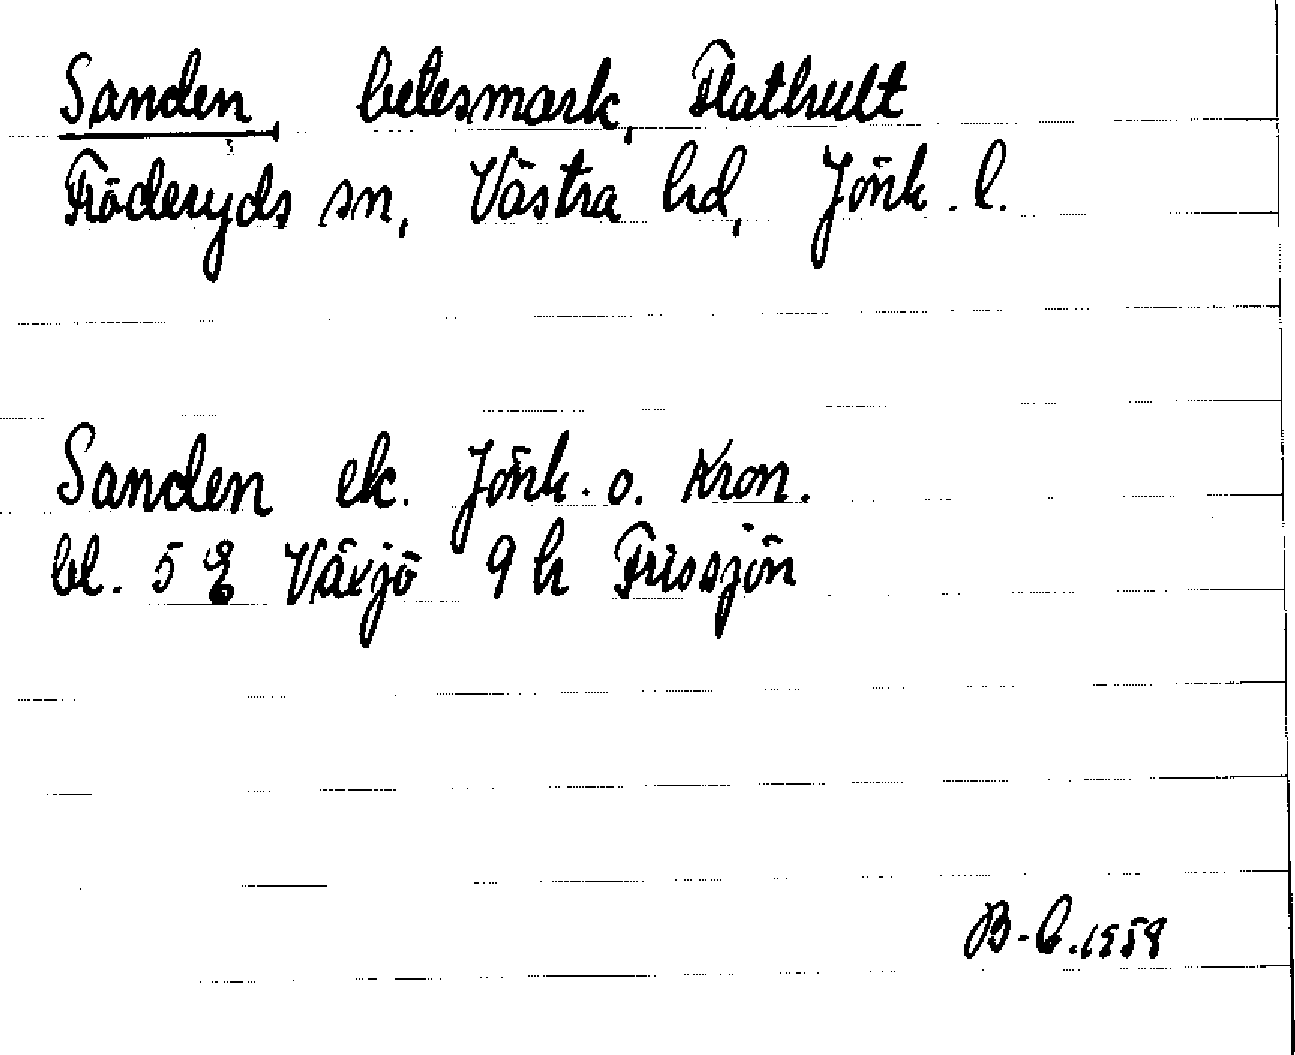 Sanden, betesmark, Flathult
Fröderyds sn, Västra hd, Jönk. l.
Sanden ek. Jönk. o. Kron.
bl. 5 E Växjö 9 h Frissjön
B-b. 1958